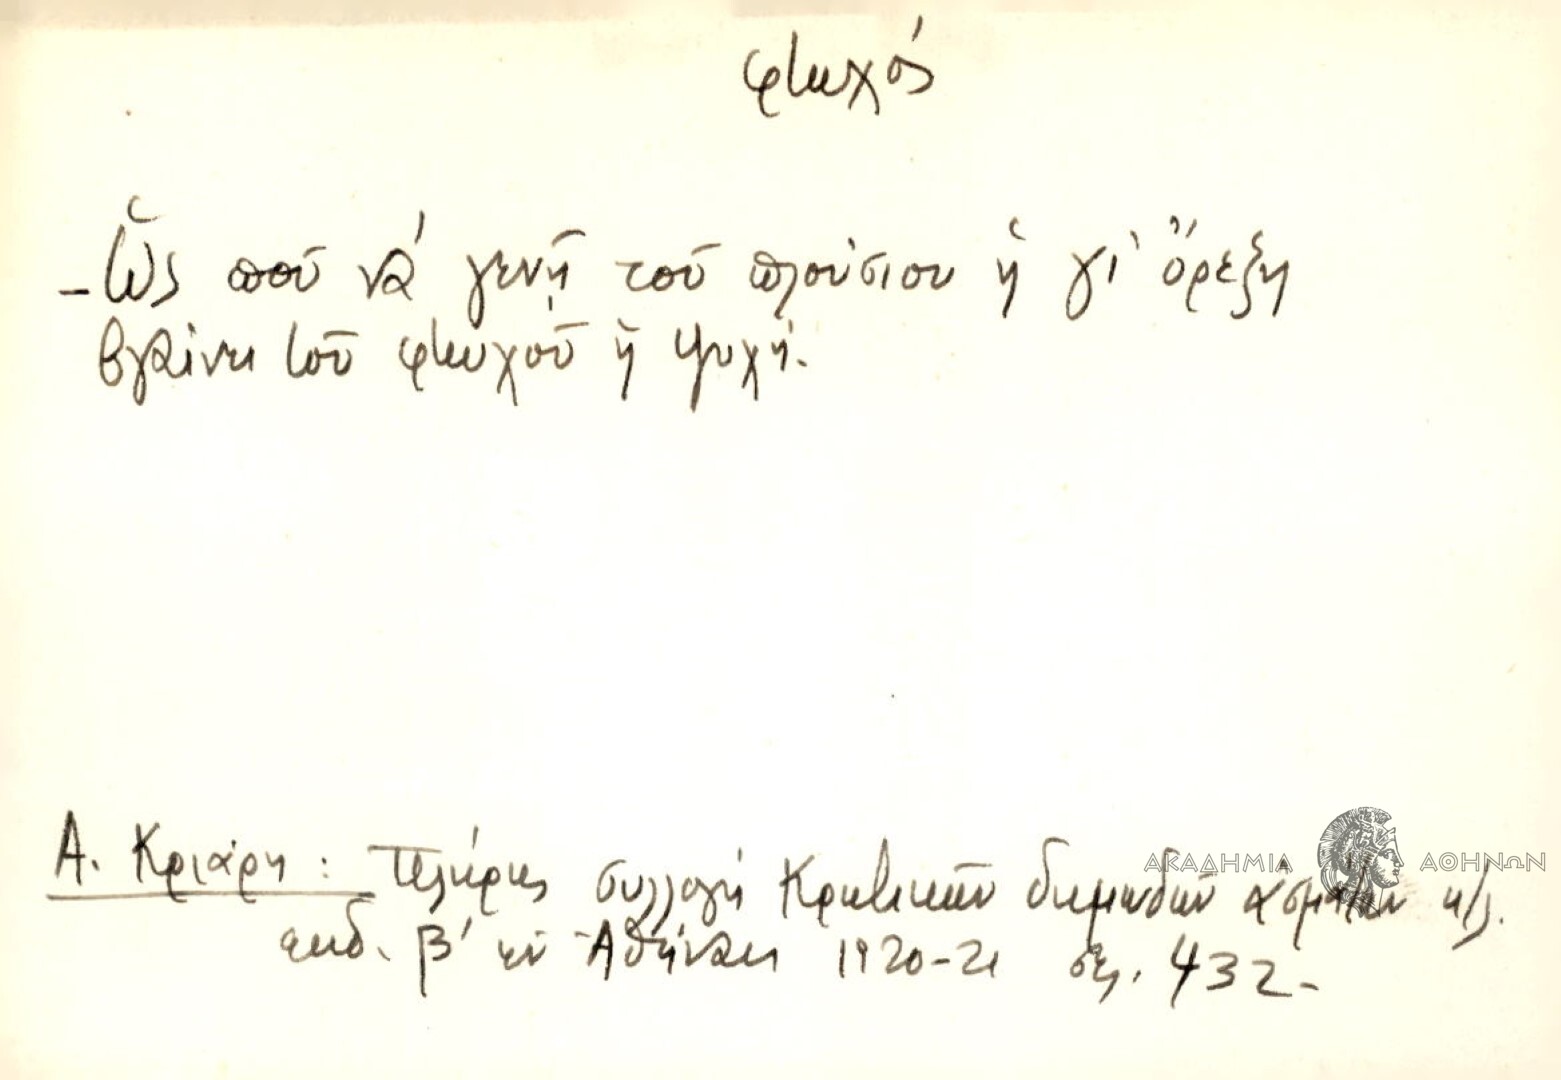 φτωχός
- Ὥς ποῦ νά γενῇ τοῦ πλούσιου ἡ γι' ὄρεξη
βγαίνει τοῦ φτωχοῦ ἡ ψυχή.
Α. Κριάρη: Πλήρης συλλογή Κρητικῶν δημωδῶν ἀσμάτων κ/λ.
ἐκδ. β' ἐν Ἀθήναις 1920-21 σελ. 432-
ΑΚΑΔΗΜΙΑ ΑΘΗΝΩΝ